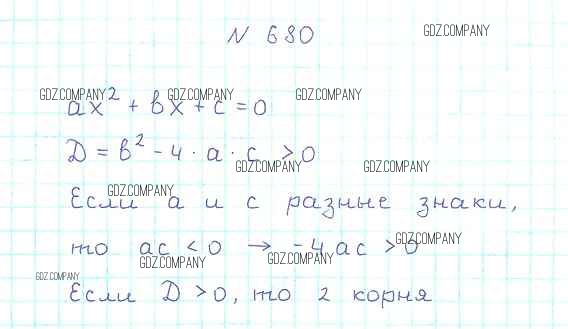 N 680
GDZ.COMPANY
GDZ.COMPANY GDZ.COMPANY GDZ.COMPANY
ax² + bx + c = 0
D = b² - 4 · a · c > 0
GDZ.COMPANY GDZ.COMPANY
GDZ.COMPANY
Если a и c разные знаки,
то ac < 0 → -4ac > 0
GDZ.COMPANY
GDZ.COMPANY GDZ.COMPANY
GDZ.COMPANY
Если D > 0, то 2 корня